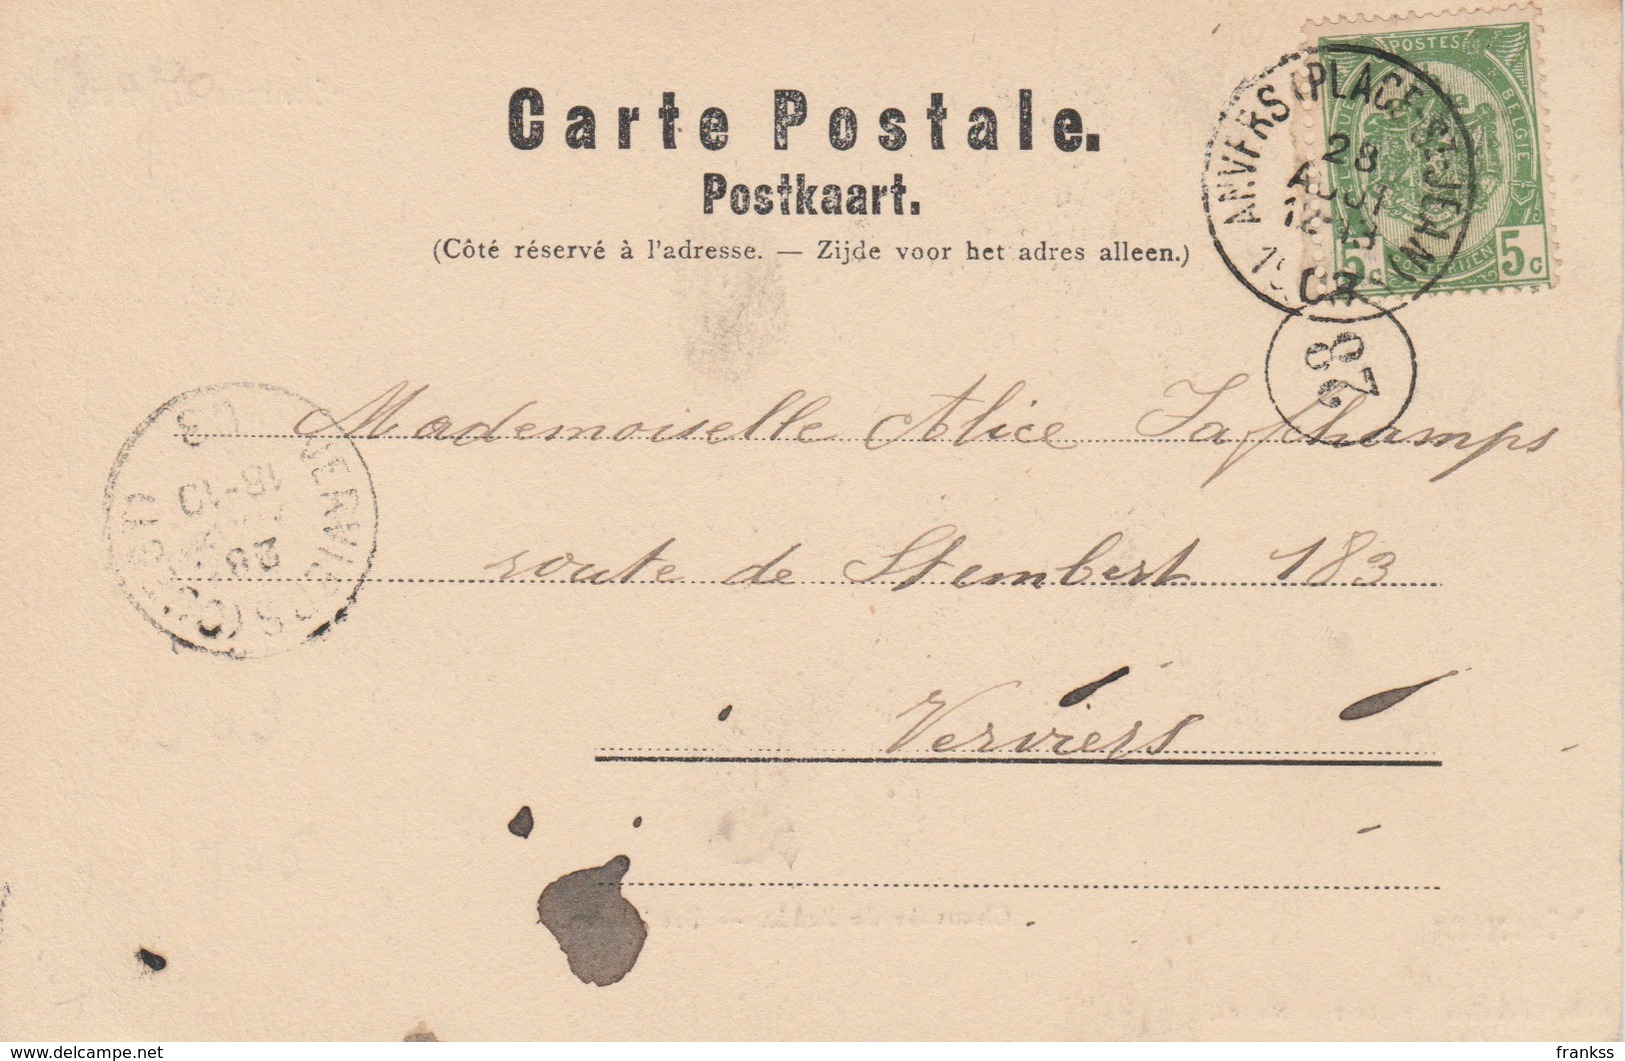 Carte Postale.
Postkaart.
(Côté réservé à l'adresse. — Zijde voor het adres alleen.)
POSTES
BELGIE
5c 5c
ANVERS (PLACE ST-JEAN)
28
AOUT
1903
28
Mademoiselle Alice Lafchamps
route de Stembert 183
Verviers
VERVIERS
18-19
28
03
delcampe.net
frankss